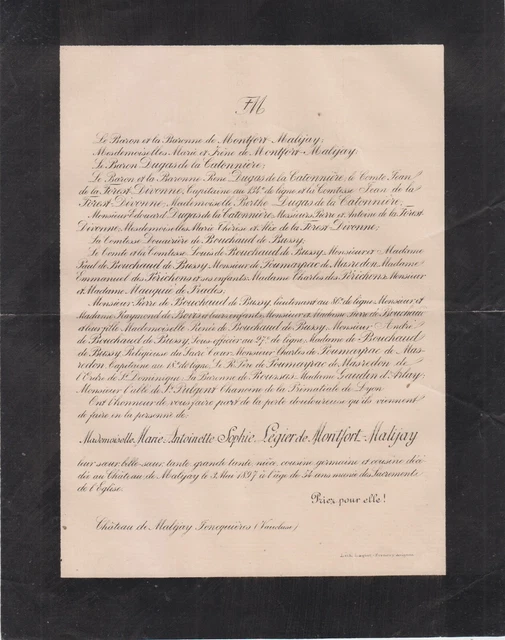 FM
Le Baron et la Baronne de Montfort-Malijay;
Mesdemoiselles Marie et Irène de Montfort-Malijay;
Le Baron Dugas de la Catonnière;
Le Baron et la Baronne René Dugas de la Catonnière, le Comte Jean
de la Forest Divonne, Capitaine au 134e de ligne et la Comtesse Jean de la
Forest Divonne, Mademoiselle Berthe Dugas de la Catonnière;
Monsieur Edouard Dugas de la Catonnière, Messieurs Pierre et Antoine de la Forest
Divonne, Mesdemoiselles Marie Thérèse et Alix de la Forest Divonne;
La Comtesse Douairière de Bouchaud de Bussy;
Le Comte et la Comtesse Louis de Bouchaud de Bussy, Monsieur et Madame
Paul de Bouchaud de Bussy, Monsieur de Toumayrac de Masredon, Madame
Emmanuel des Périchons et ses enfants, Madame Charles des Périchons, Monsieur
et Madame Mauguis de Prades;
Monsieur Pierre de Bouchaud de Bussy, lieutenant au de ligne, Monsieur et
Madame Raymond de Boirs et leurs enfants, Monsieur et Madame Pierre de Bouchaud
et leur fille, Mademoiselle Renée de Bouchaud de Bussy, Monsieur André
de Bouchaud de Bussy, Sous-officier au 97e de ligne, Madame de Bouchaud
de Bussy, Religieuse du Sacré Cœur, Monsieur Charles de Toumayrac de Mas-
redon, Capitaine au de ligne, Le R. Père de Toumayrac de Masredon de
l'Ordre de St Dominique, La Baronne de Roussas, Madame Gaudin d'Arlay;
Monsieur l'abbé de St Pulgent, Chanoine de la Primatiale de Lyon,
Ont l'honneur de vous faire part de la perte douloureuse qu'ils viennent
de faire en la personne de
Mademoiselle Marie-Antoinette Sophie Légier de Montfort-Malijay
leur sœur, belle-sœur, tante, grande-tante, nièce, cousine germaine et cousine, décé-
dée au Château de Malijay le 3 Mai 1897 à l'âge de 54 ans munie des Sacrements
de l'Eglise.
Priez pour elle!
Château de Malijay Jonquières (Vaucluse)